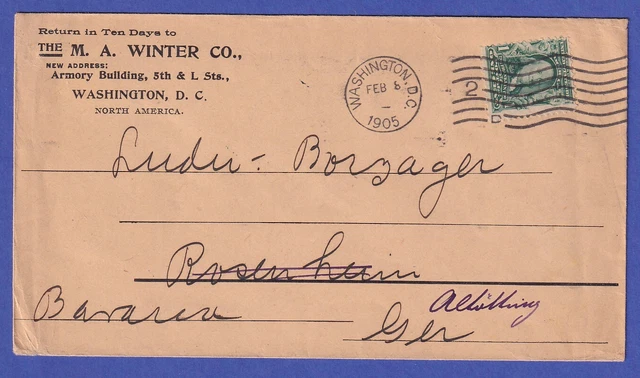 Return in Ten Days to
THE M. A. WINTER CO.,
NEW ADDRESS:
Armory Building, 5th & L Sts.,
WASHINGTON, D. C.
NORTH AMERICA.
WASHINGTON, D.C.
FEB 8
1905
2
D
Borzager
Rosenheim
Bavaria
Altötting
Ger